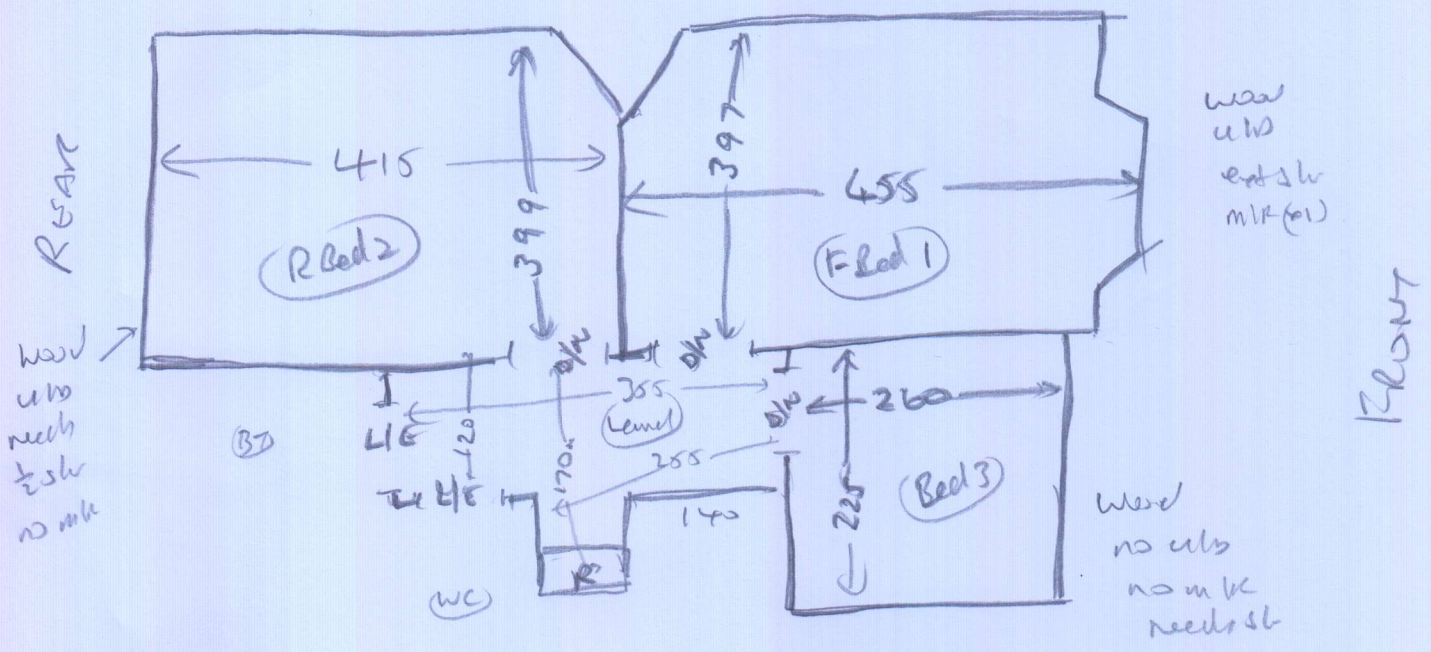 REAR
415
399
R Bed 2
397
455
F-Bed 1
wood
u/b
ext s/r
m/k (x1)
FRONT
wood
u/b
needs
½ s/r
no m/k
D/N
D/N
355
Land
L/E
120
170
255
D/N
260
225
Bed 3
L/E
140
R
WC
wood
no u/b
no m/k
needs s/r